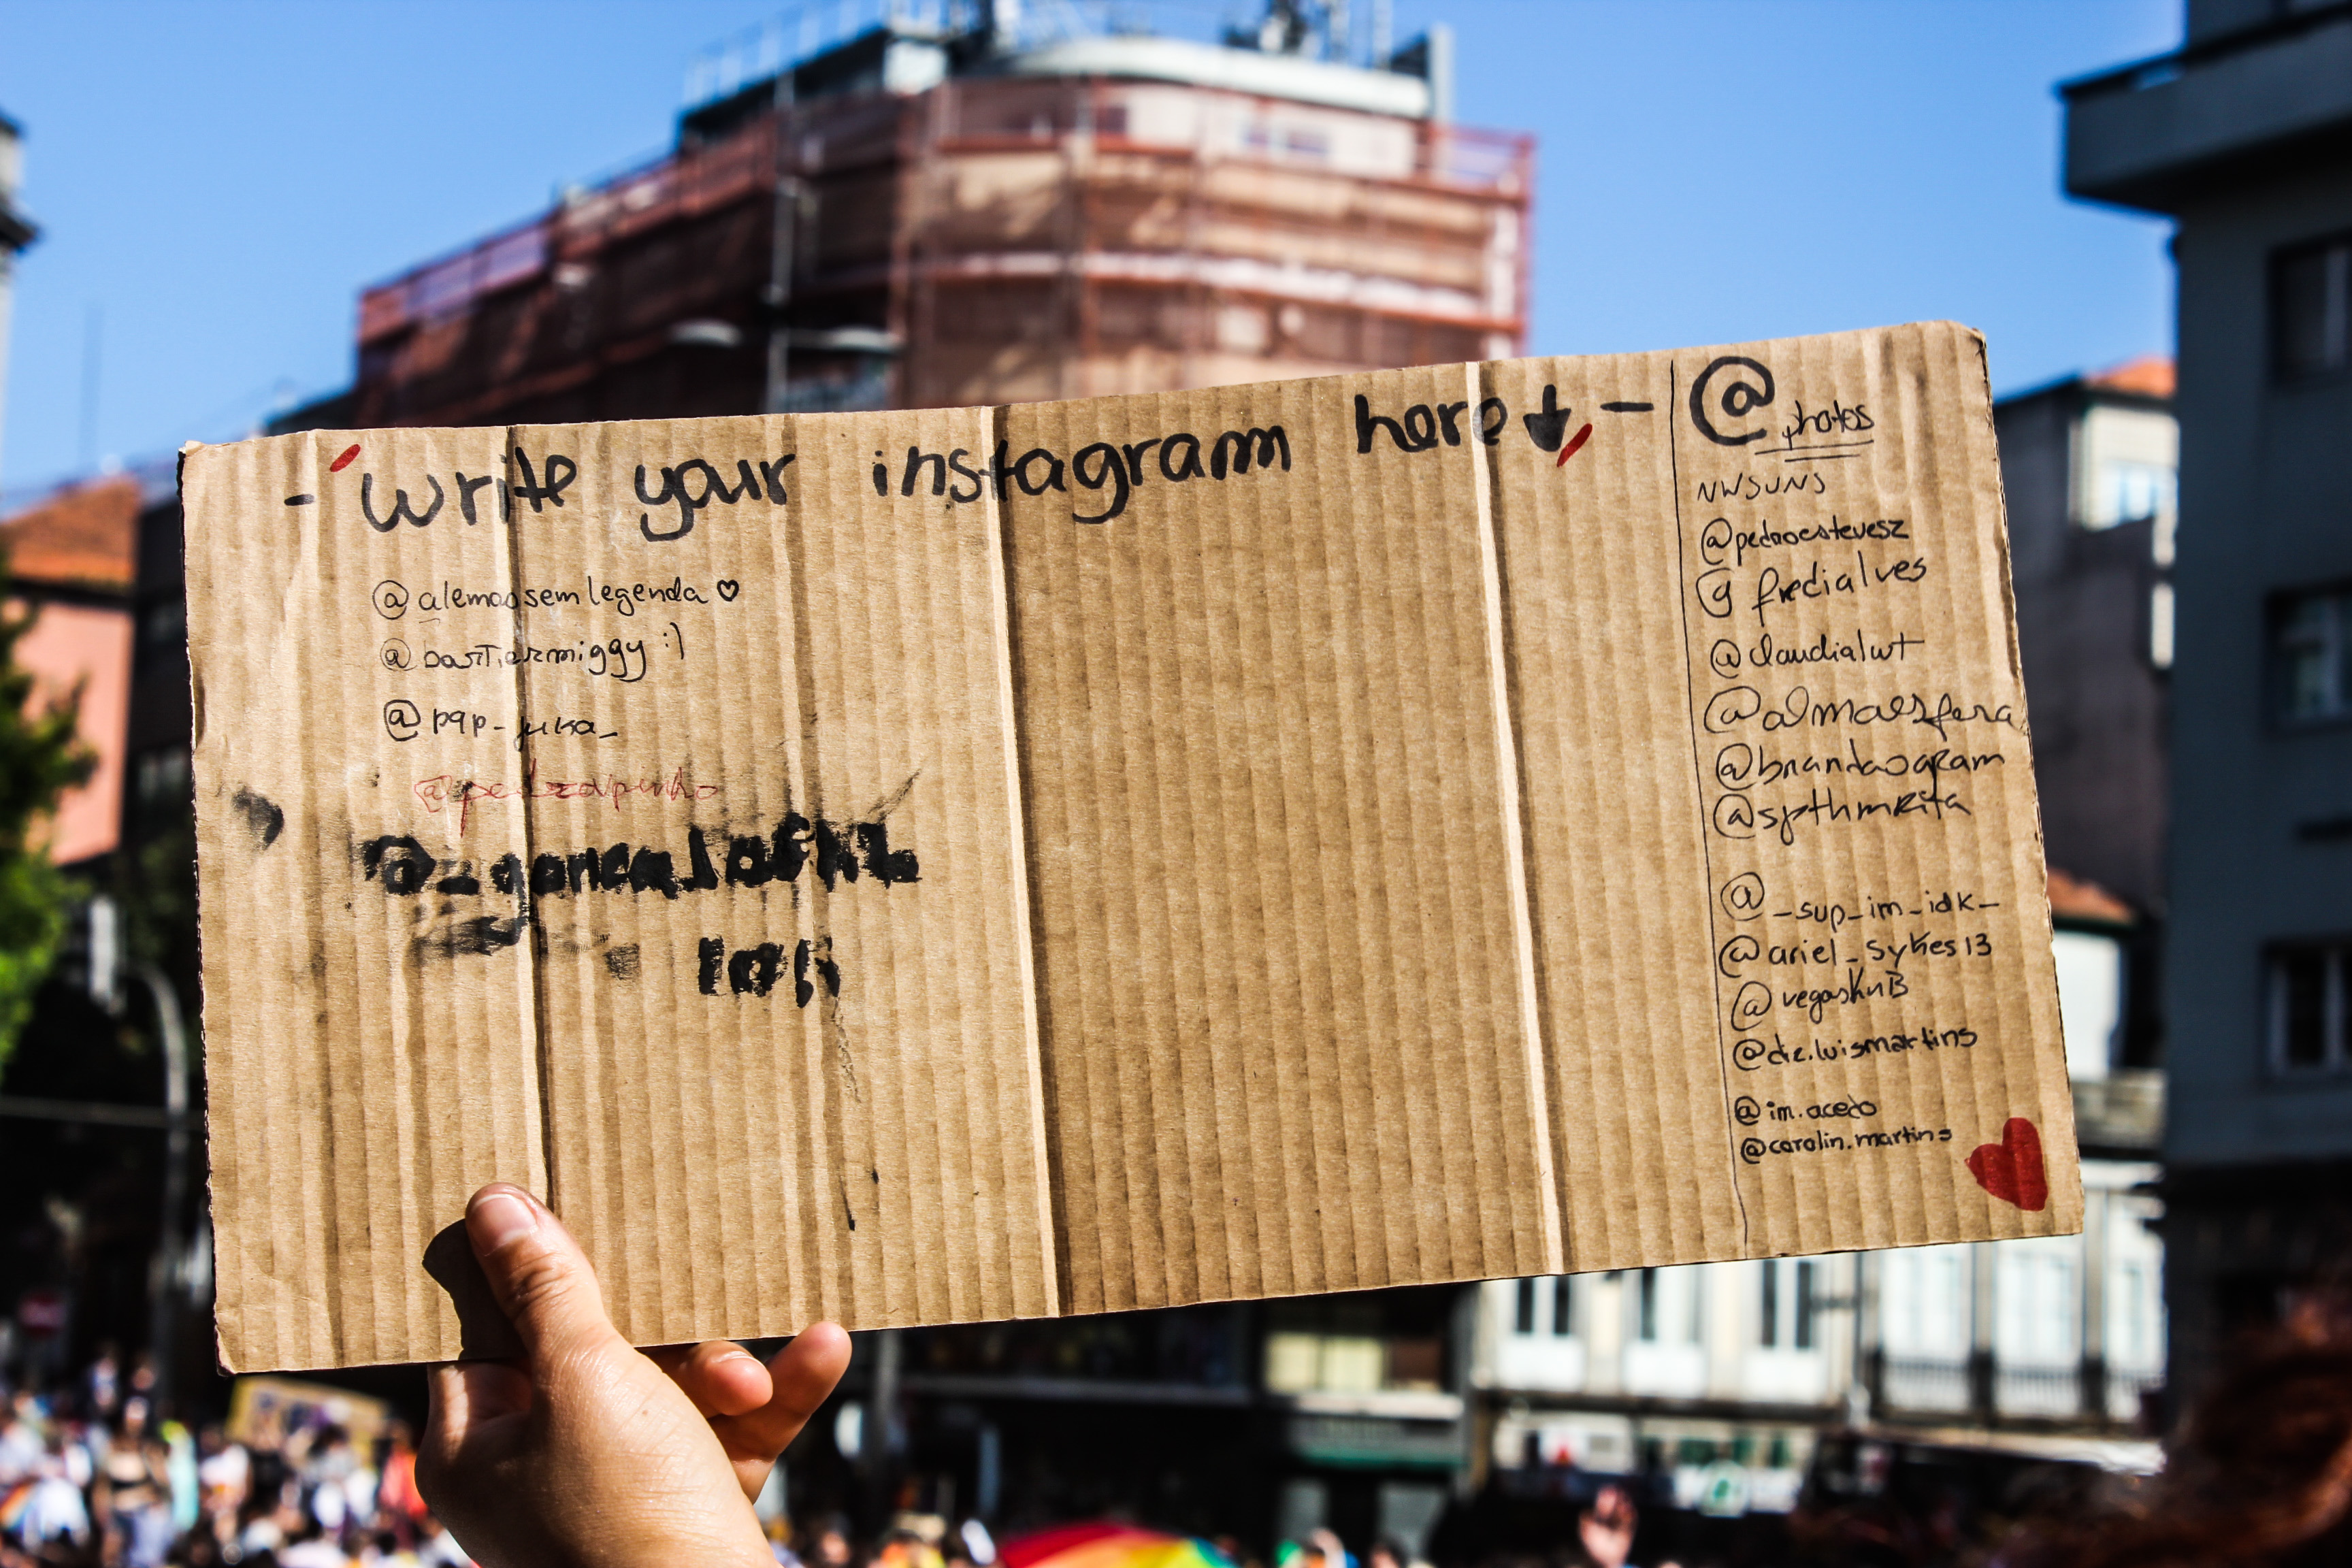 - write your instagram here ↓ -
@alemaosemlegenda ♡
@bastiermiggy :)
@pap_juka_
@photos
NWSUNS
@pedroestevesz
@fredialves
@claudialwt
@almaesfera
@brandaogram
@spthmrita
@_sup_im_idk_
@ariel_sykes13
@vegasknB
@dc.luismartins
@im.acedo
@carolin.martins